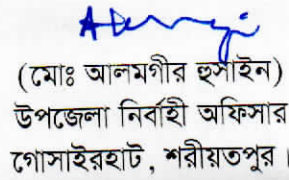 (মোঃ আলমগীর হুসাইন)
উপজেলা নির্বাহী অফিসার
গোসাইরহাট, শরীয়তপুর।